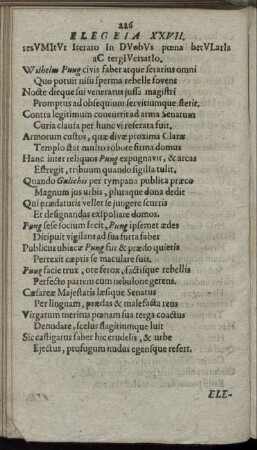 226
ELEGEIA XXVII.
resVMItVr Iterato In DVobVs pœna betVLarIa
aC tergIVersatIo.
Wilhelm Pung civis faber atque serarius omni
Quo potuit nisu sperma rebelle fovens
Nocte dieque sui veneratus jussa magistri
Promptus ad obsequium servitiumque stetit.
Contra legitimum concurrit ad arma Senatum
Curia clausa per hunc vi reserata fuit.
Armorum custos, quæ divæ proxima Claræ
Templo stat multo robore firma domus
Hanc inter reliquos Pung expugnavit, & arcas
Effregit, tribuum quando sigilla tulit.
Quando Gulichii per tympana publica præco
Magnum jus urbis, pluraque dona dedit
Qui prædaturis vellet se jungere scurris
Et designandas exspoliare domos.
Pung sese socium fecit, Pung ipsemet ædes
Diripuit vigilans ad sua furta faber
Publicus ubicæ Pung fur & prædo quietis
Perrexit cæptis se maculare suis,
Pung facie trux, ore ferox, factisque rebellis
Perfecto partem cum nebulone gerens.
Cæsareæ Majestatis læsique Senatus
Per linguam, prædas & malefacta reus
Virgarum meritus pœnam sua terga coactus
Denudare, scelus flagitiumque luit
Sic castigatus faber hic crudelis, & urbe
Ejectus, profugum nudus egensque refert.
ELE-